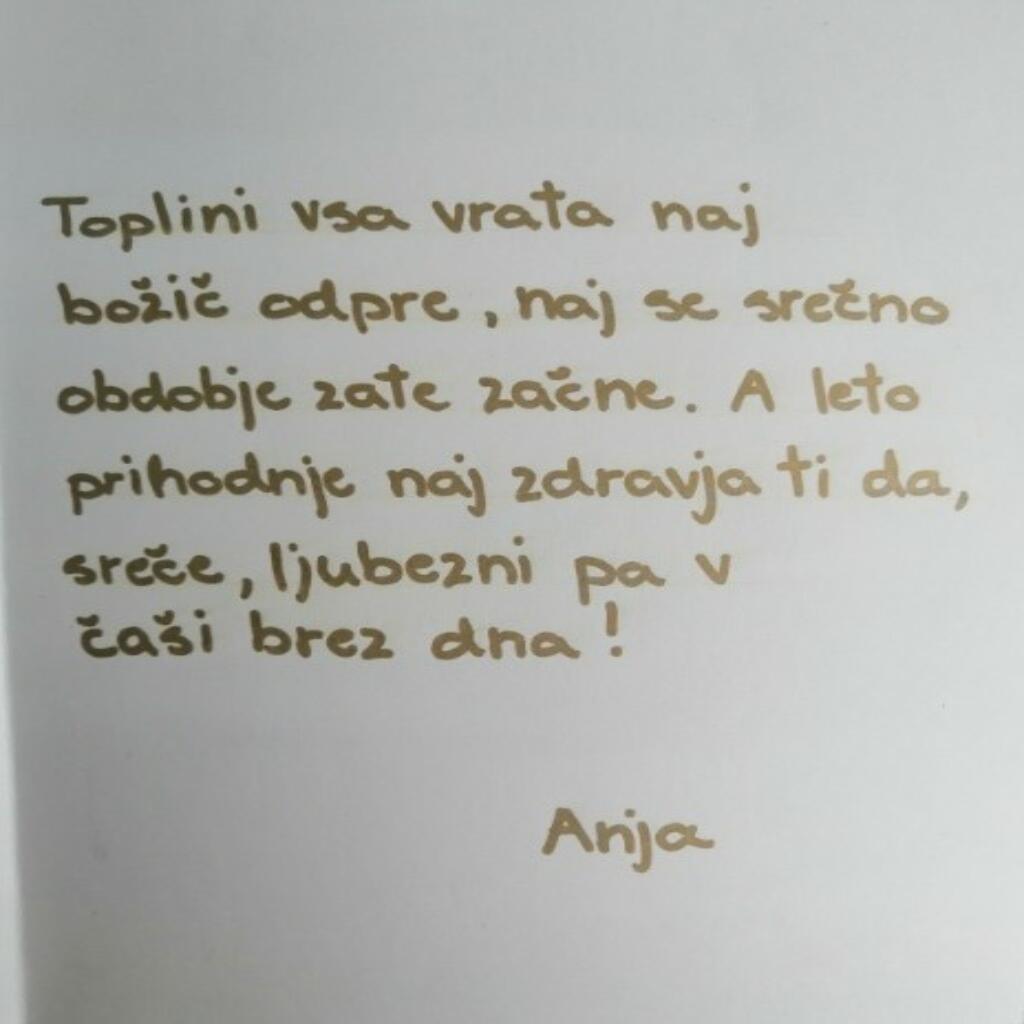 Toplini vsa vrata naj
božič odpre, naj se srečno
obdobje zate začne. A leto
prihodnje naj zdravja ti da,
sreče, ljubezni pa v
čaši brez dna!
Anja